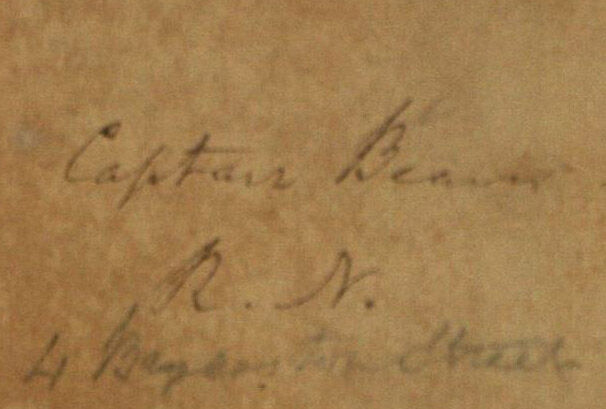 Captain Beaver
R. N.
4 Bryanston Street